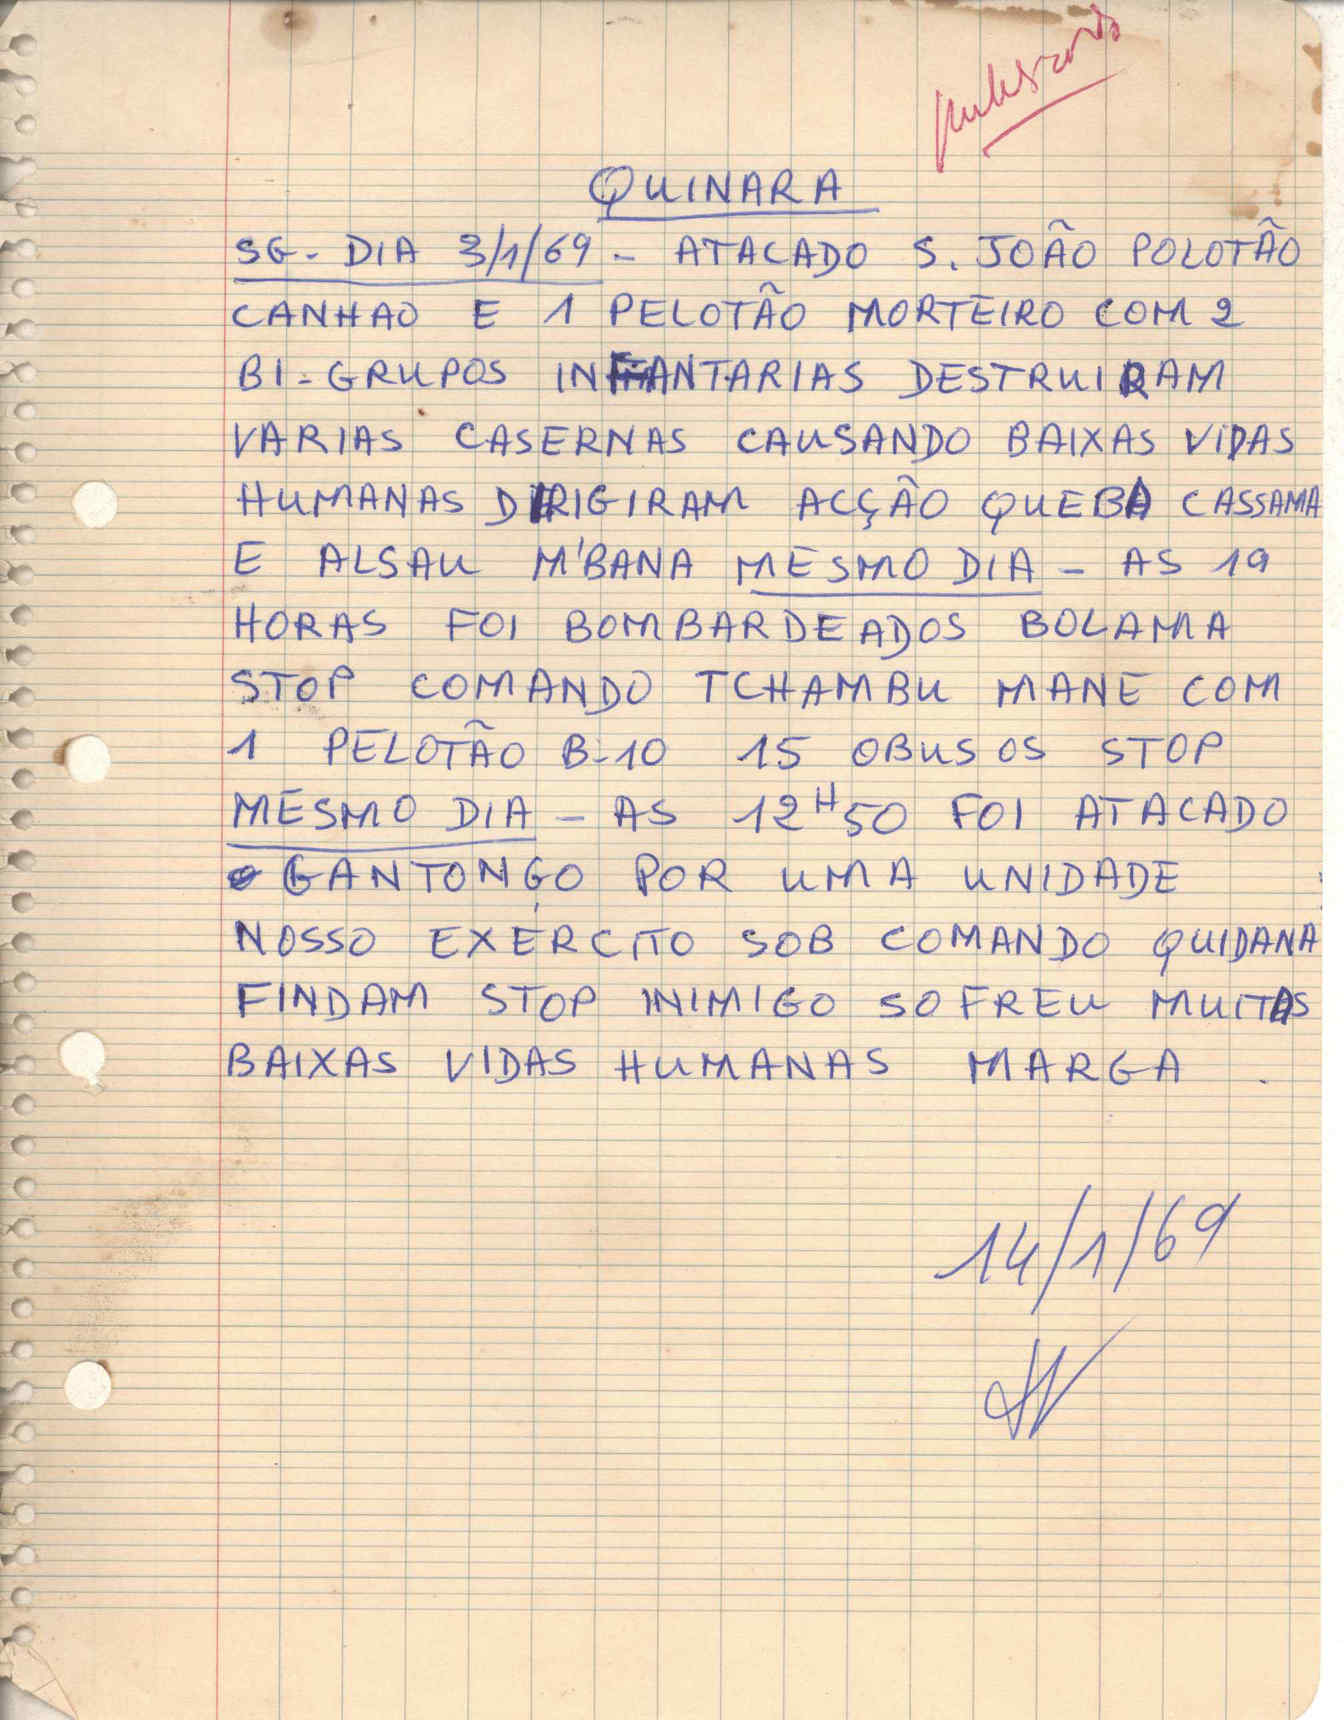 QUINARA
SG - DIA 3/1/69 - ATACADO S. JOÃO POLOTÃO
CANHAO E 1 PELOTÃO MORTEIRO COM 2
BI-GRUPOS INFANTARIAS DESTRUIRAM
VARIAS CASERNAS CAUSANDO BAIXAS VIDAS
HUMANAS DIRIGIRAM ACÇÃO QUEBA CASSAMA
E ALSAU M'BANA MESMO DIA - AS 19
HORAS FOI BOMBARDEADOS BOLAMA
STOP COMANDO TCHAMBU MANE COM
1 PELOTÃO B-10 15 OBUSOS STOP
MESMO DIA - AS 12H50 FOI ATACADO
GANTONGO POR UMA UNIDADE
NOSSO EXÉRCITO SOB COMANDO QUIDANA
FINDAM STOP INIMIGO SOFREU MUITAS
BAIXAS VIDAS HUMANAS MARGA .
14/1/69